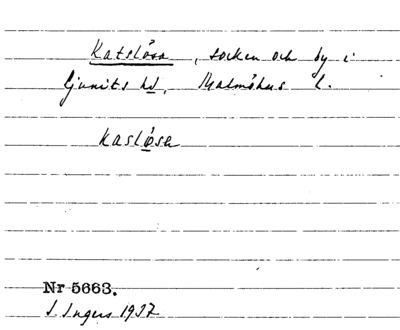 Katslösa, socken och by i
Ljunits hd, Malmöhus l.
kaslösa
Nr 5663.
I. Ingers 1937